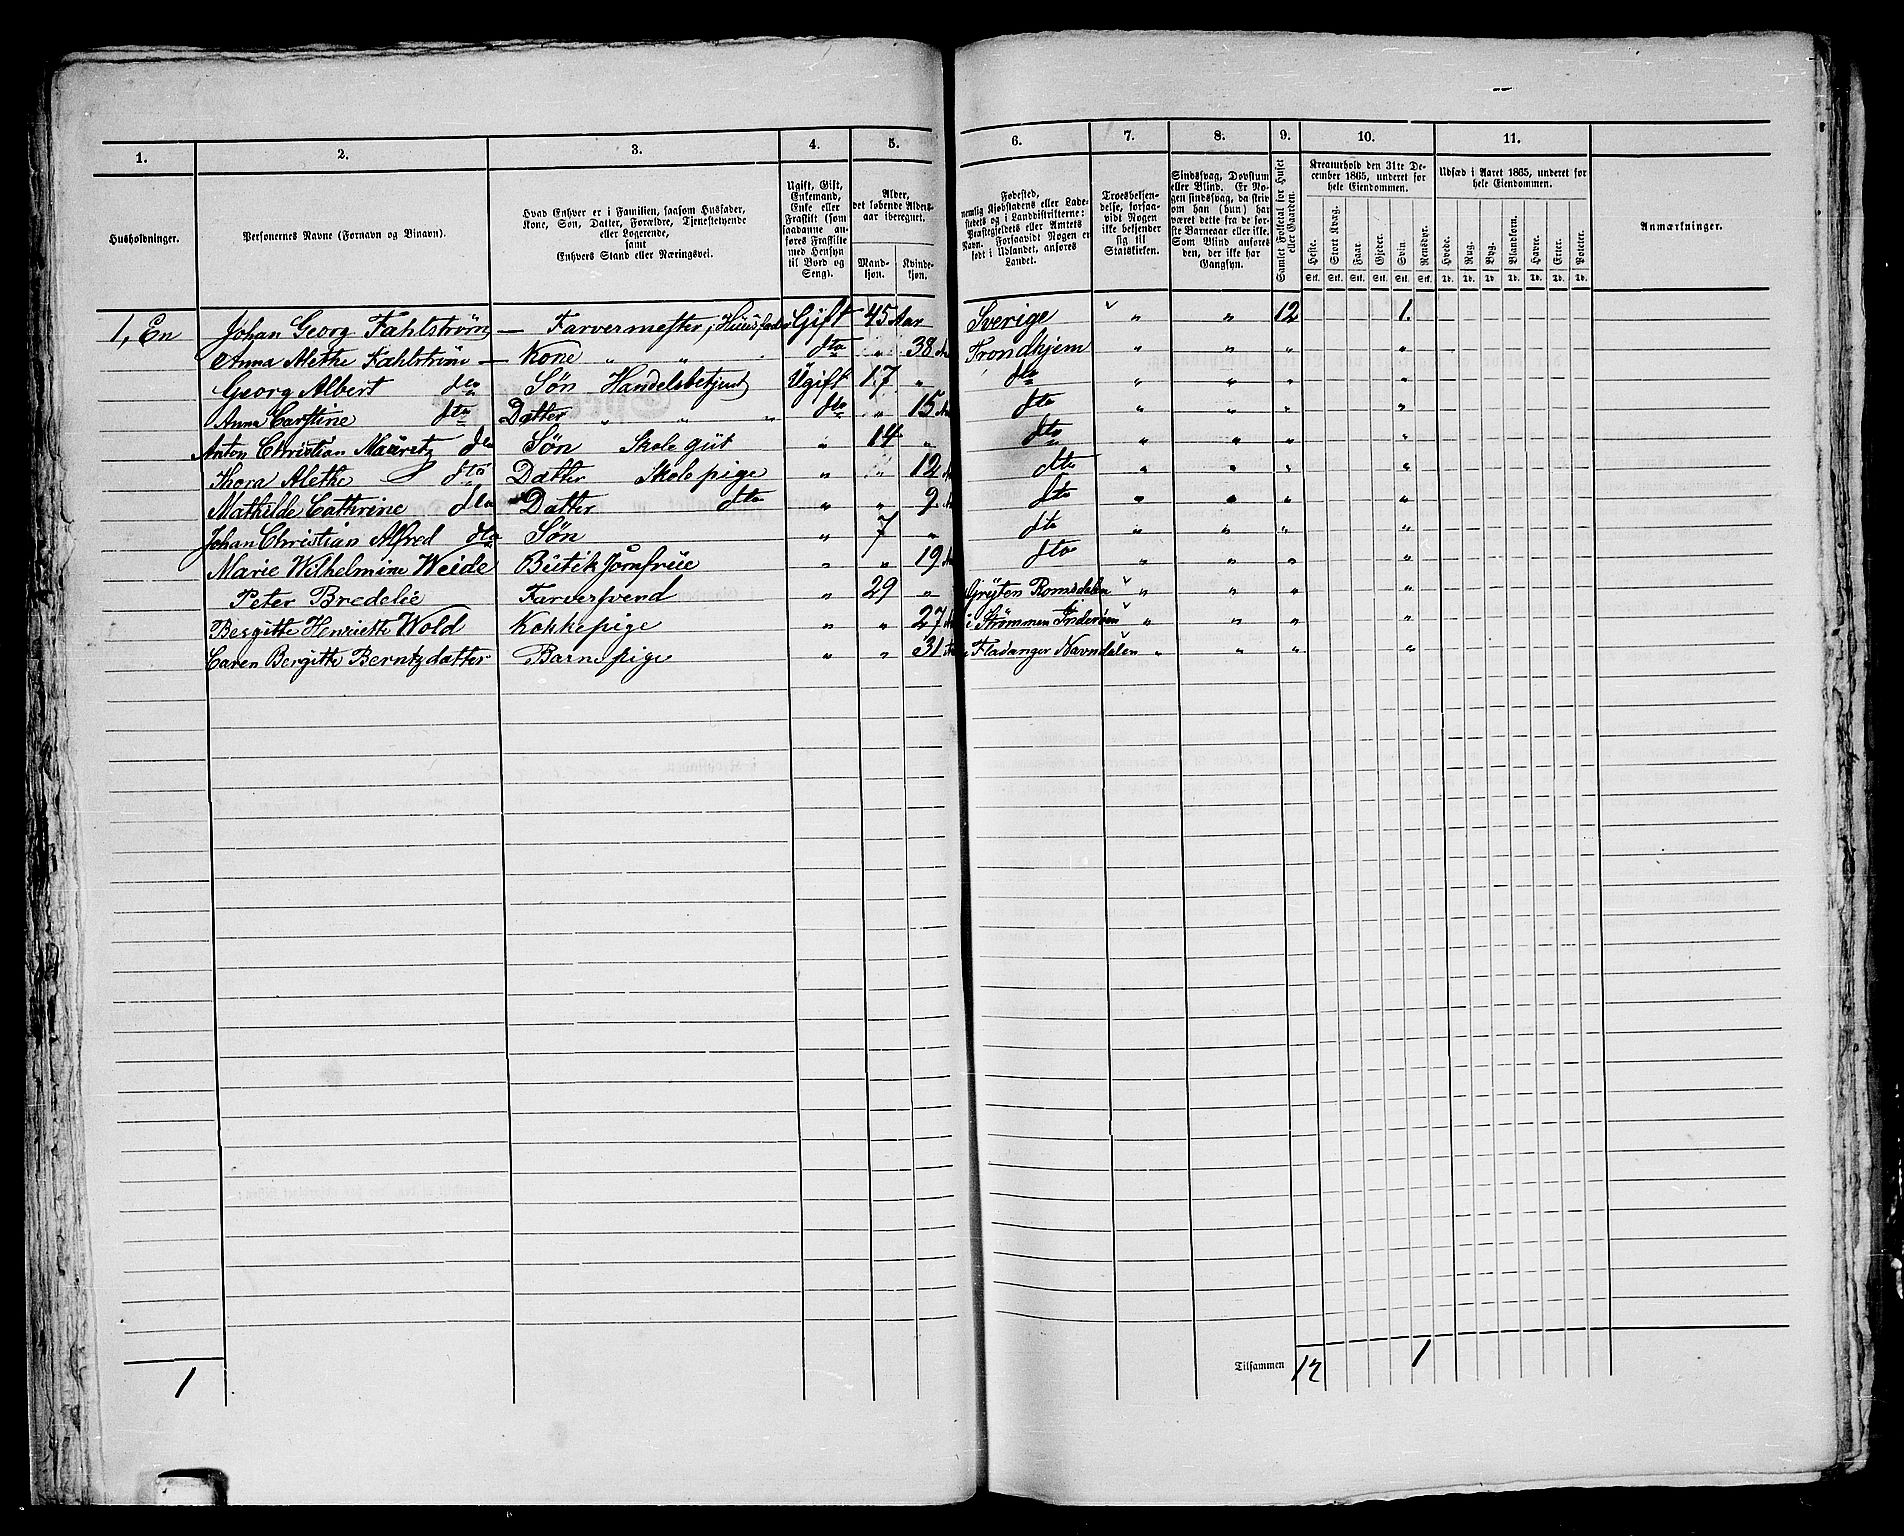 1. 2. 3. 4. 5. 6. 7. 8. 9. 10. 11.
Husholdninger.
Personernes Navne (Fornavn og Tilnavn).
Hvad Enhver er i Familien, saasom Husfader,
Kone, Søn, Datter, Forældre, Tjenestetyende
eller Logerende,
samt
Enhvers Stand eller Næringsvei.
Ugift, Gift,
Enkemand,
Enke eller
Fraskilt (som
saadanne an-
føres Fraskilte
med Hensyn
til Bord og
Seng).
Alder,
det løbende Alders-
aar iberegnet.
Mand-
kjøn.
Kvinde-
kjøn.
Fødested,
nemlig Kjøbstadens eller Lade-
stedets og i Landdistrikterne:
Præstegjeldets eller Amtets
Navn. Forsaavidt Nogen er
født i Udlandet, anføres
Landet.
Troesbekjen-
delse, forsaa-
vidt Nogen
ikke bekjender
sig til
Statskirken.
Sindssvag, Døvstum
eller Blind. Er No-
gen sindssvag, da skriv
om han (hun) har
været dette fra de før-
ste Barneaar eller ikke.
Som Blind anføres
den, der ikke har
Gangsyn.
Samlet Folketal for Huset
eller Gaarden.
Kreaturhold den 31te De-
cember 1865, underet for
hele Eiendommen.
Heste. Stort Kvæg. Faar. Gjeder. Svin. Rensdyr.
Stk. Stk. Stk. Stk. Stk. Stk.
Udsæd i Aaret 1865, underet for
hele Eiendommen.
Hvede. Rug. Byg. Blandkorn. Havre. Erter. Poteter.
Td. Td. Td. Td. Td. Td. Td.
Anmærkninger.
1, En Johan Georg Fahlstrøm — Farvermester, Huusfader Gift 45 Aar Sverige " " 12 1.
Anna Alethe Fahlstrøm — Kone " " dto " 38 Trondhjem " " " "
Georg Albert dto Søn Handelsbetjent Ugift 17 " dto " " " "
Anna Carstine dto Datter " " " dto " 15 dto " " " "
Anton Christian Mauretz dto Søn Skole gut " 14 " dto " " " "
Thora Alethe dto Datter Skole pige " " 12 dto " " " "
Mathilde Cathrine dto Datter dto " " 9 dto " " " "
Johan Christian Alfred dto Søn " 7 " dto " " " "
Marie Wilhelmine Weide Butik Jomfrue " " 19 dto " " " "
Peter Bredelie Farversvend " 29 " Grytten Romsdalen " " " "
Besgitte Henriette Wold Kokkepige " " 27 i Strømmen Inderøen " " " "
Caren Bergitte Berntzdatter Barnepige " " 31 i Fladanger Navndalen " " " "
1 Tilsammen 12 1